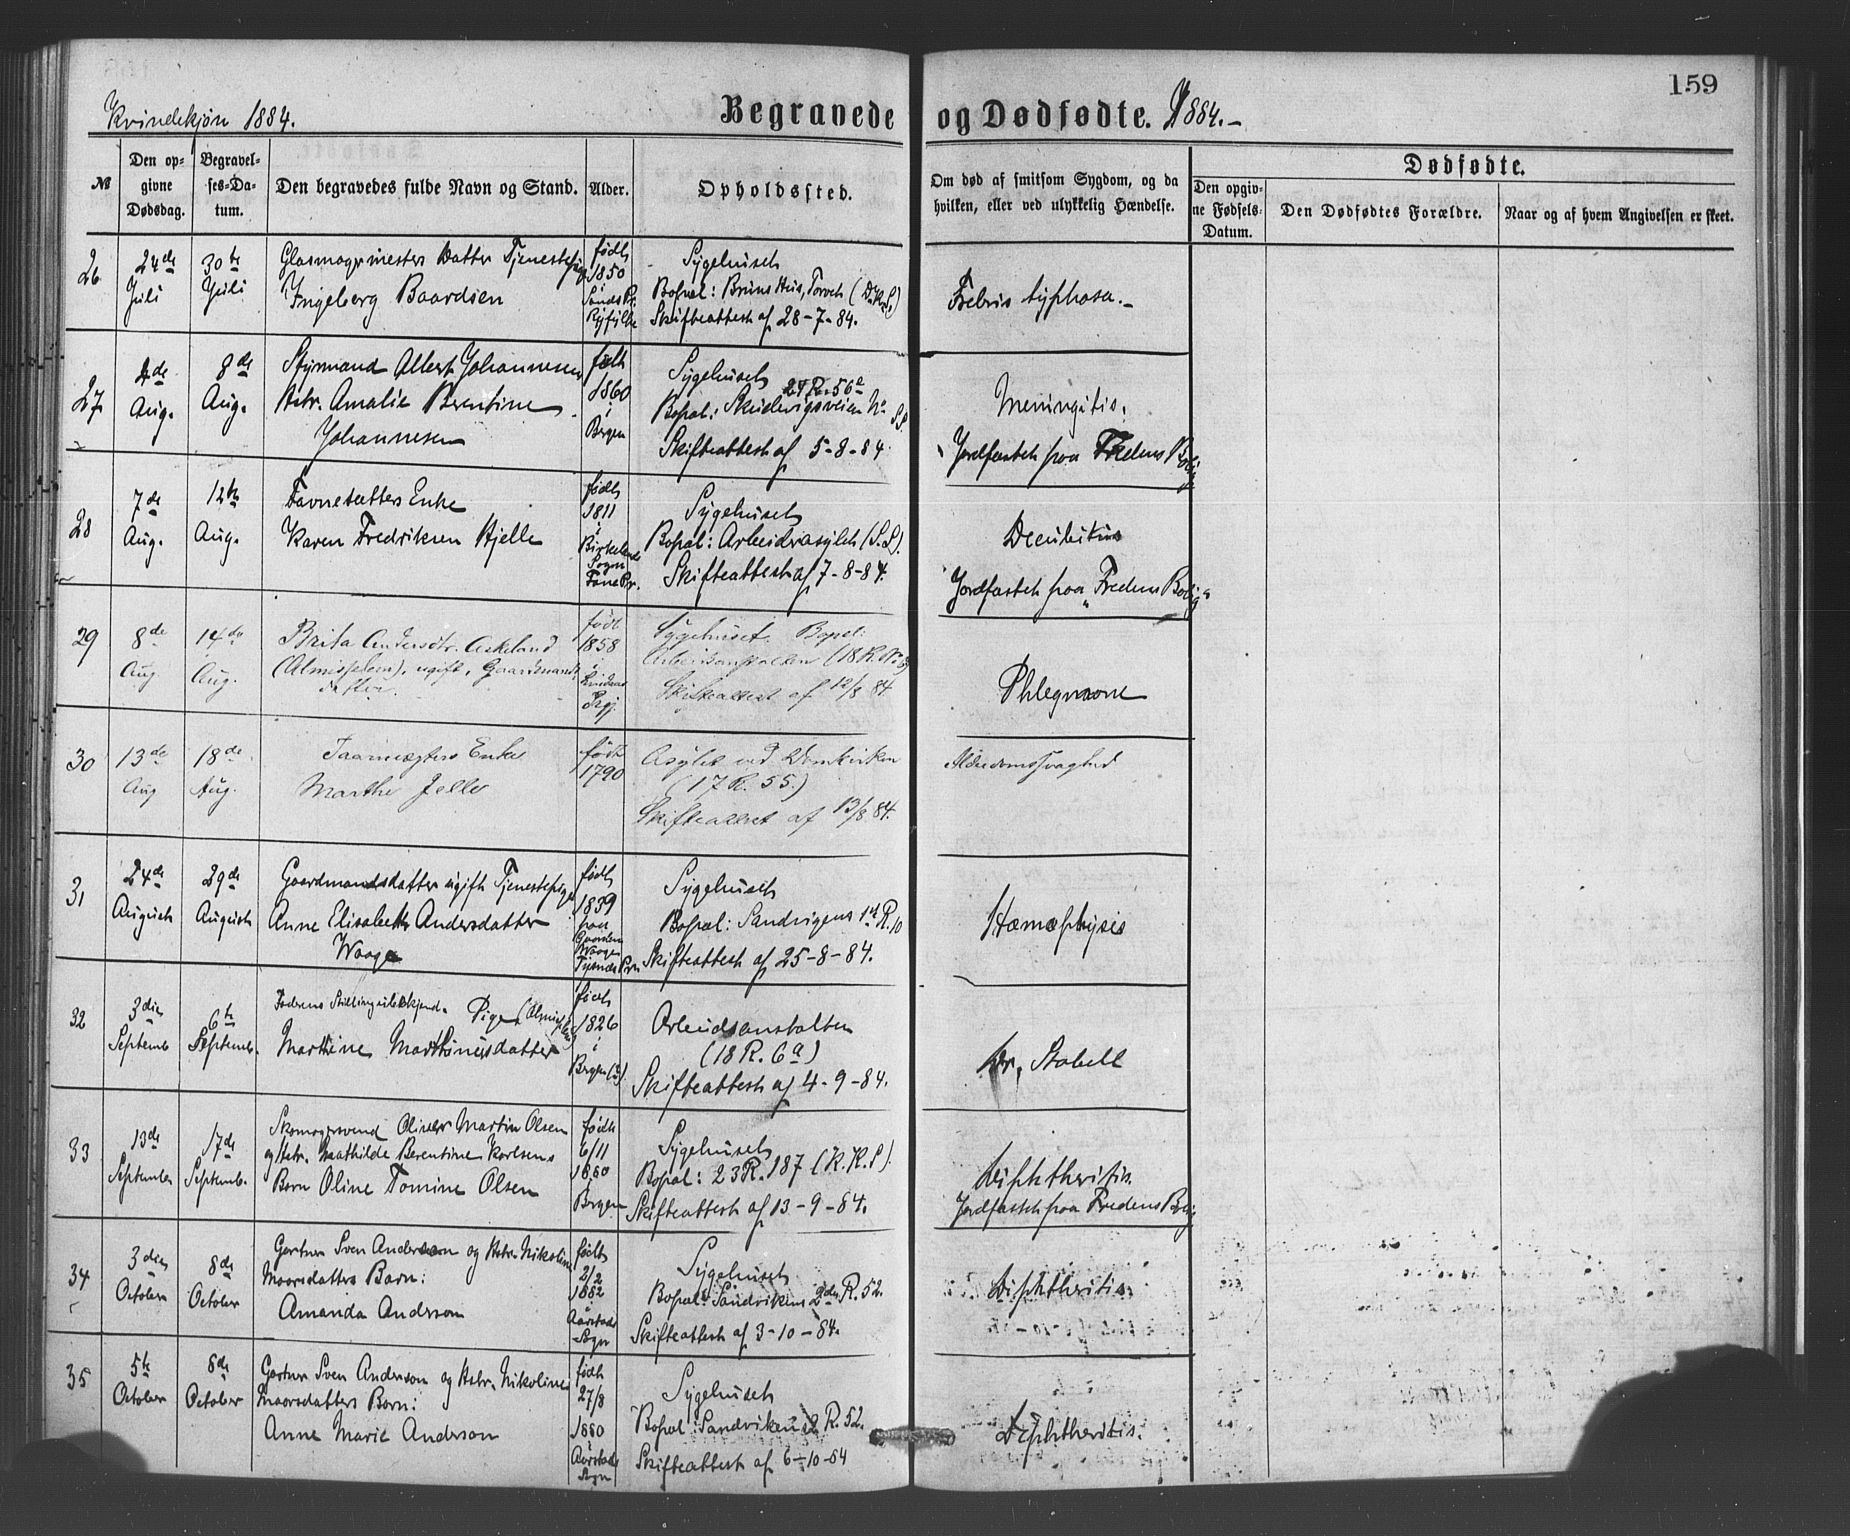 159
Kvindekjøn 1884.
Begravede og Dødfødte. 1884.-
№
Den opgivne Dødsdag.
Begravelses-Datum.
Den begravedes fulde Navn og Stand.
Alder.
Opholdssted.
Om død af smitsom Sygdom, og da hvilken, eller ved ulykkelig Hændelse.
Dødfødte.
Den opgivne Fødsels-Datum.
Den Dødfødtes Forældre.
Naar og af hvem Angivelsen er skeet.
26
24de Juli
30te Juli
Glasmagermesters Datter Tjenestepige
Ingeborg Baardsen
født
1850
i
Sands Pr.
Ryfylke
Sygehuset
Bopæl: Bruns Hus, Torvet
Skifteattest af 28-7-84.
Febris typhosa.-
27
2de Aug.
8de Aug.
Styrmand Albert Johannesen
Hstr. Amalie Berentine
Johannesen
født
1860
i
Bergen
Sygehuset
24 R. 56a
Bopæl: Skudevigsveien No
Skifteattest af 5-8-84.
Meningitis.
Jordfæstet paa Fredens Bolig
28
7de Aug.
12te Aug.
Favnesætters Enke
Karen Fredriksen Hjelle
født
1811
i
Birkelands
Sogn
Fane Pr.
Sygehuset
Bopæl: Arbeidsasylet (S.S).
Skifteattest af 7-8-84.
Decubitus
Jordfæstet paa "Fredens Bolig"
29
8de Aug
14de Aug.
Brita Andersdtr. Askeland
(Almisselem), ugift, Gaardmands
datter.
født
1858
i
Sygehuset. Bopel:
Arbeidsanstalten (18 R. No
Skifteattest af 12/8 84.
Phlegmone
30
13de Aug
18de Aug.
Taarnvægters Enke
Marthe Jelle
født
1790
Asylet ved Domkirken
(17 R. 55.)
Skifteattest af 13/8 84.
Alderdomssvaghed
31
24de August
29de August
Gaardmandsdatter ugift Tjenestepige
Anne Elisabeth Andersdatter
Waage
født
1839
paa
Gaarden
Waage
Tysnæs Pr.
Sygehuset
Bopæl: Sandvigens 1ste R. 10
Skifteattest af 25-8-84.
Hæmophysis
32
3die Septemb
6te Septemb.
Faderens Stilling ubekjendt. Pige (Almisselem)
Marthine Marthinusdatter
født
1826
i
Bergen
Arbeidsanstalten
(18 R. 6a)
Skifteattest af 4-9-84.
Dr. Stabell
33
13de September
17de Septemb.
Skomagersvend Oliver Martin Olsen
og Hstr. Mathilde Berentine Karlsens
Barn Oline Tomine Olsen
født
6/11
1880
i
Bergen
Sygehuset
Bopæl: 23 R. 187 (K.K.S).
Skifteattest af 13-9-84.
Diphtheritis.
Jordfæstet paa Fredens Bolig
34
3die October
8de October
Gartner Sven Anderson og Hstr. Nikoline
Maorsdatters Barn:
Amanda Anderson
født
2/2
1882
i
Aarstads
Sogn
Sygehuset
Bopæl: Sandvikens 2den R. 52.
Skifteattest af 3-10-84.
Diphtheritis.
35
5te October
8de October
Gartner Sven Anderson og Hstr. Nikoline
Maorsdatters Barn:
Anne Marie Anderson
født
27/8
1880
i
Aarstads
Sogn
Sygehuset
Bopæl: Sandvikens 2 R. 52.
Skifteattest af 6-10-84
Diphtheritis.